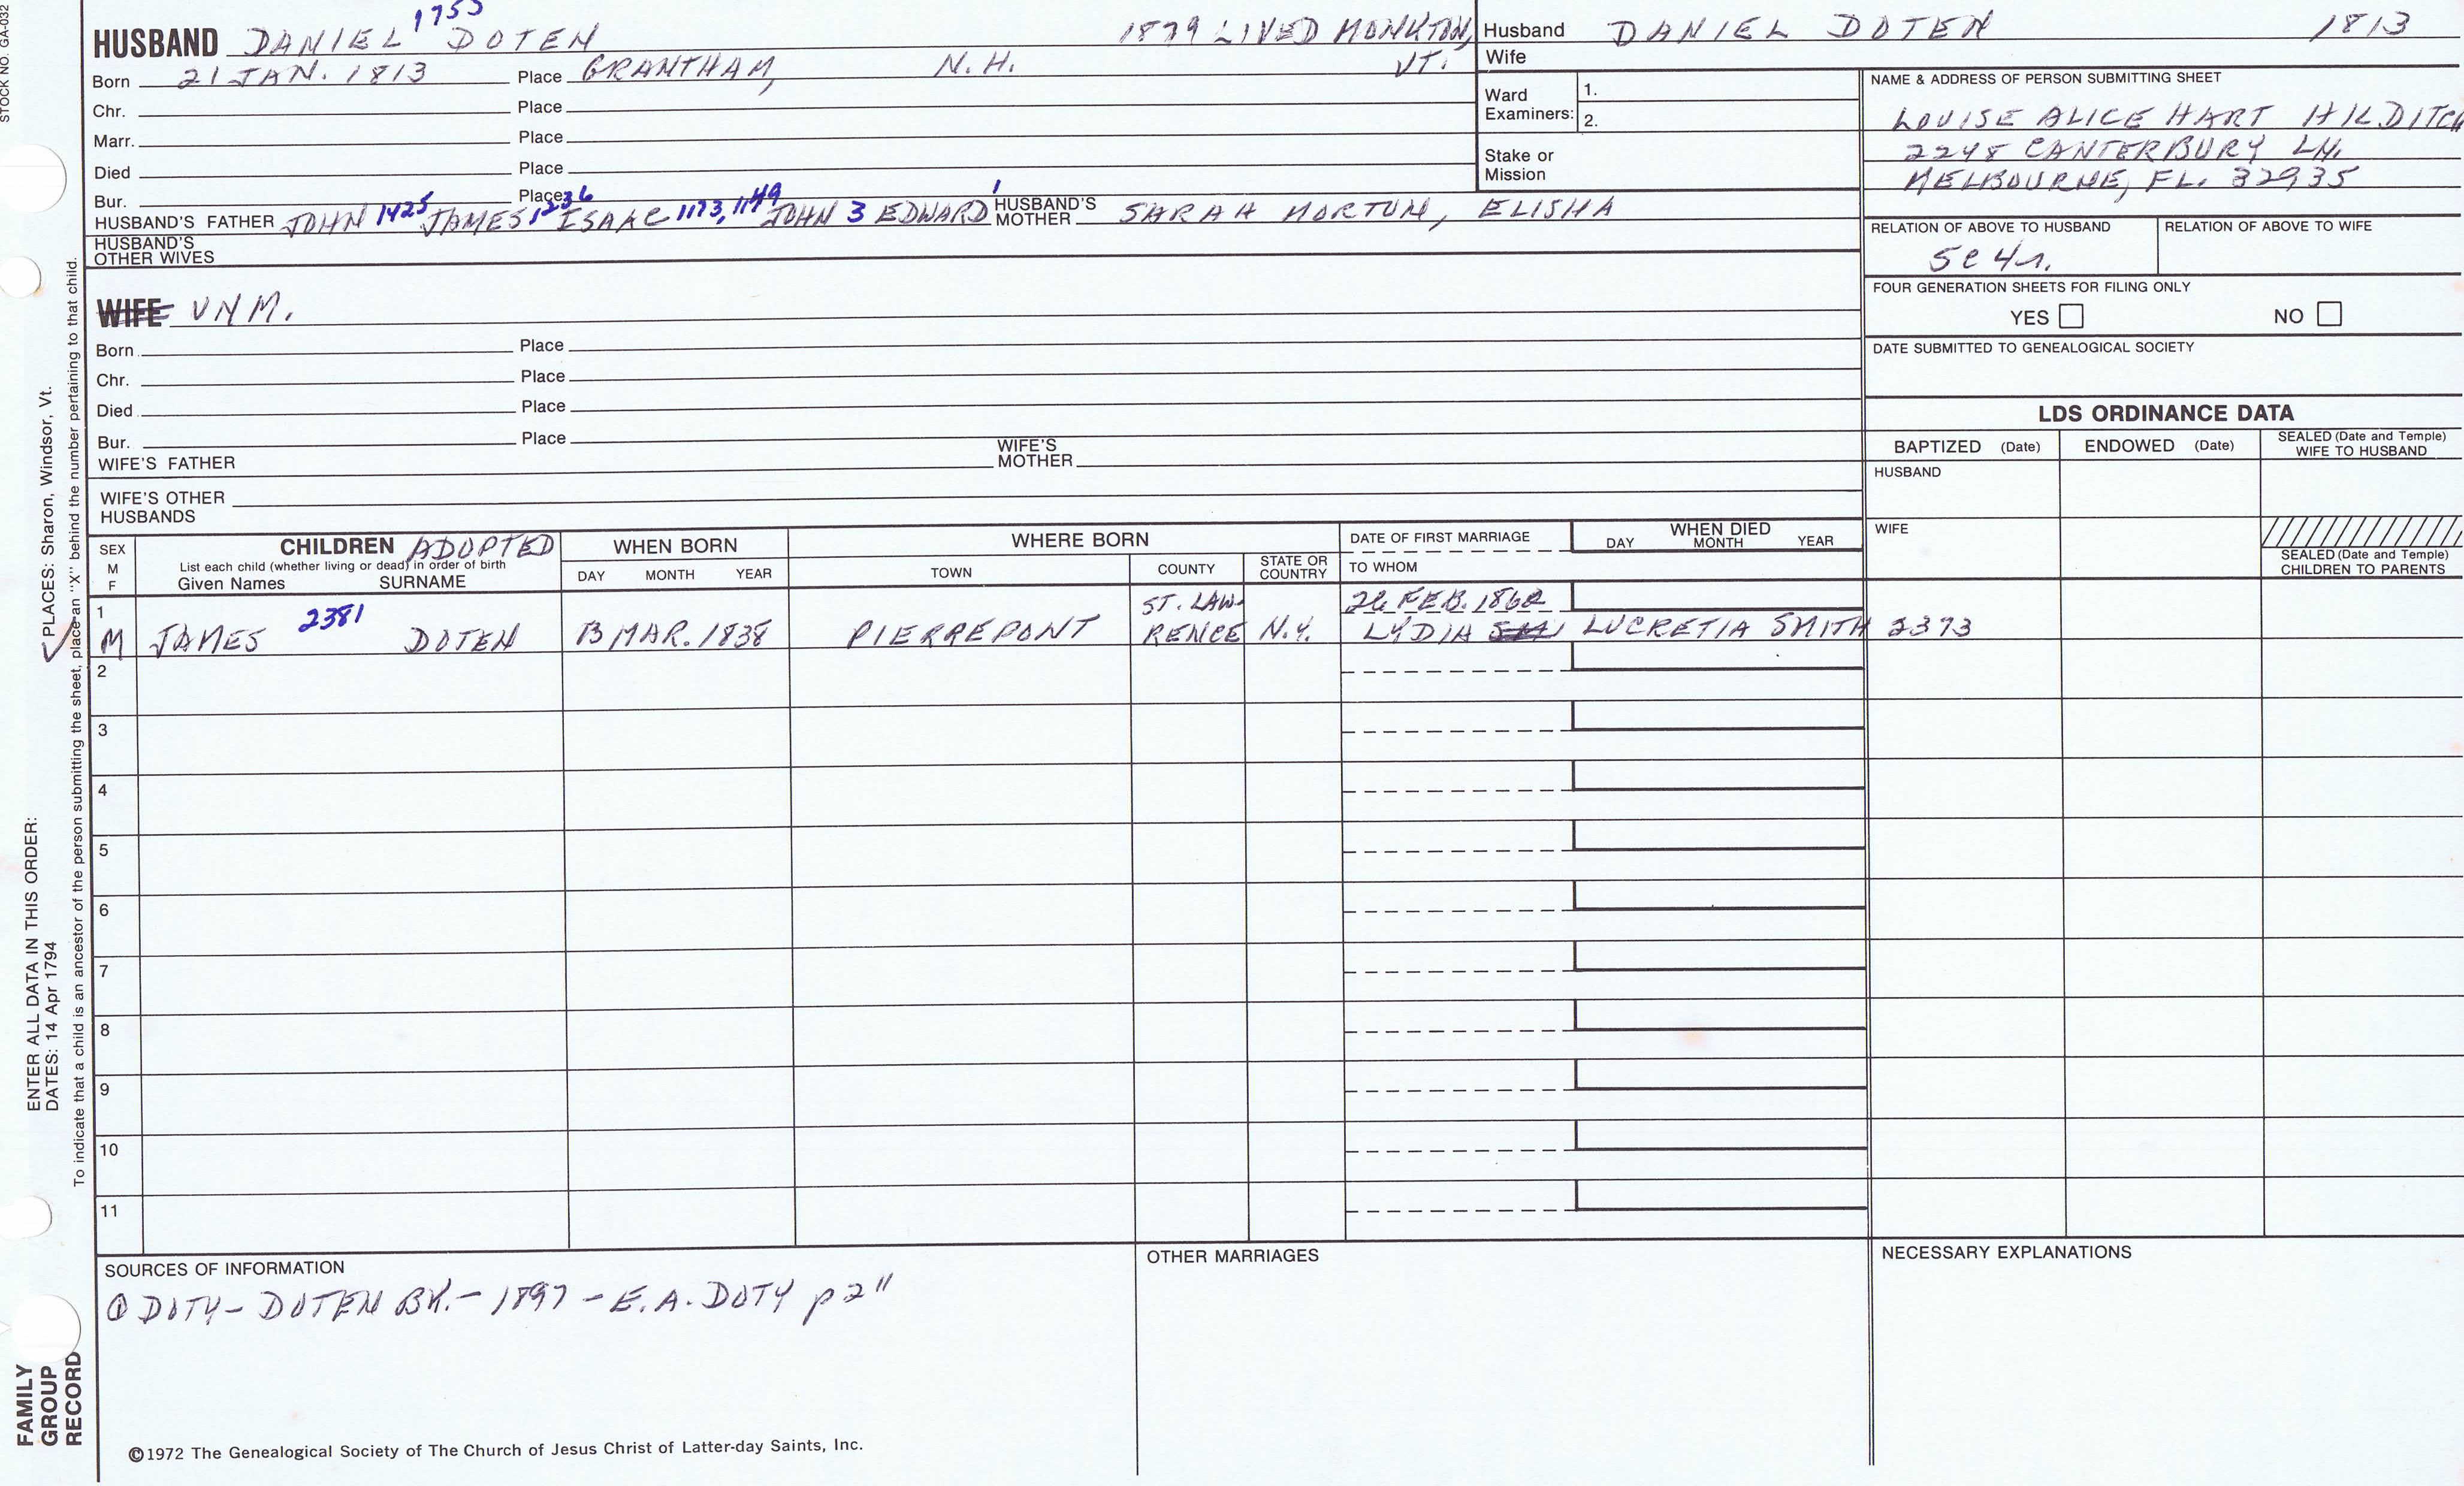 STOCK NO. GA-032
1755
HUSBAND DANIEL DOTEN 1879 LIVED MONKTON, VT.
Born 21 JAN. 1813 Place GRANTHAM, N.H.
Chr. Place
Marr. Place
Died Place
Bur. Place
HUSBAND'S FATHER JOHN 1425 JAMES 1236 ISAAC 1173, 1149 JOHN 3 EDWARD 1 HUSBAND'S MOTHER SARAH MORTON, ELISHA
HUSBAND'S OTHER WIVES
Husband DANIEL DOTEN 1813
Wife
Ward Examiners: 1.
2.
Stake or Mission
NAME & ADDRESS OF PERSON SUBMITTING SHEET
LOUISE ALICE HART HILDITCH
2248 CANTERBURY LN.
MELBOURNE, FL. 32935
RELATION OF ABOVE TO HUSBAND
5c4r.
RELATION OF ABOVE TO WIFE
FOUR GENERATION SHEETS FOR FILING ONLY
YES NO
DATE SUBMITTED TO GENEALOGICAL SOCIETY
WIFE UNM.
Born Place
Chr. Place
Died Place
Bur. Place
WIFE'S FATHER WIFE'S MOTHER
WIFE'S OTHER HUSBANDS
LDS ORDINANCE DATA
BAPTIZED (Date) ENDOWED (Date) SEALED (Date and Temple) WIFE TO HUSBAND
HUSBAND
WIFE
SEALED (Date and Temple) CHILDREN TO PARENTS
SEX M F
CHILDREN ADOPTED
List each child (whether living or dead) in order of birth
Given Names SURNAME
WHEN BORN
DAY MONTH YEAR
WHERE BORN
TOWN COUNTY STATE OR COUNTRY
DATE OF FIRST MARRIAGE
TO WHOM
WHEN DIED
DAY MONTH YEAR
1 M JAMES 2381 DOTEN 13 MAR. 1838 PIERREPONT ST. LAWRENCE N.Y. 26 FEB. 1862
LYDIA LUCRETIA SMITH 2373
2
3
4
5
6
7
8
9
10
11
SOURCES OF INFORMATION
① DOTY- DOTEN BK. - 1897 - E.A. DOTY p 211
OTHER MARRIAGES
NECESSARY EXPLANATIONS
©1972 The Genealogical Society of The Church of Jesus Christ of Latter-day Saints, Inc.
FAMILY GROUP RECORD
ENTER ALL DATA IN THIS ORDER:
DATES: 14 Apr 1794
PLACES: Sharon, Windsor, Vt.
To indicate that a child is an ancestor of the person submitting the sheet, place an "X" behind the number pertaining to that child.